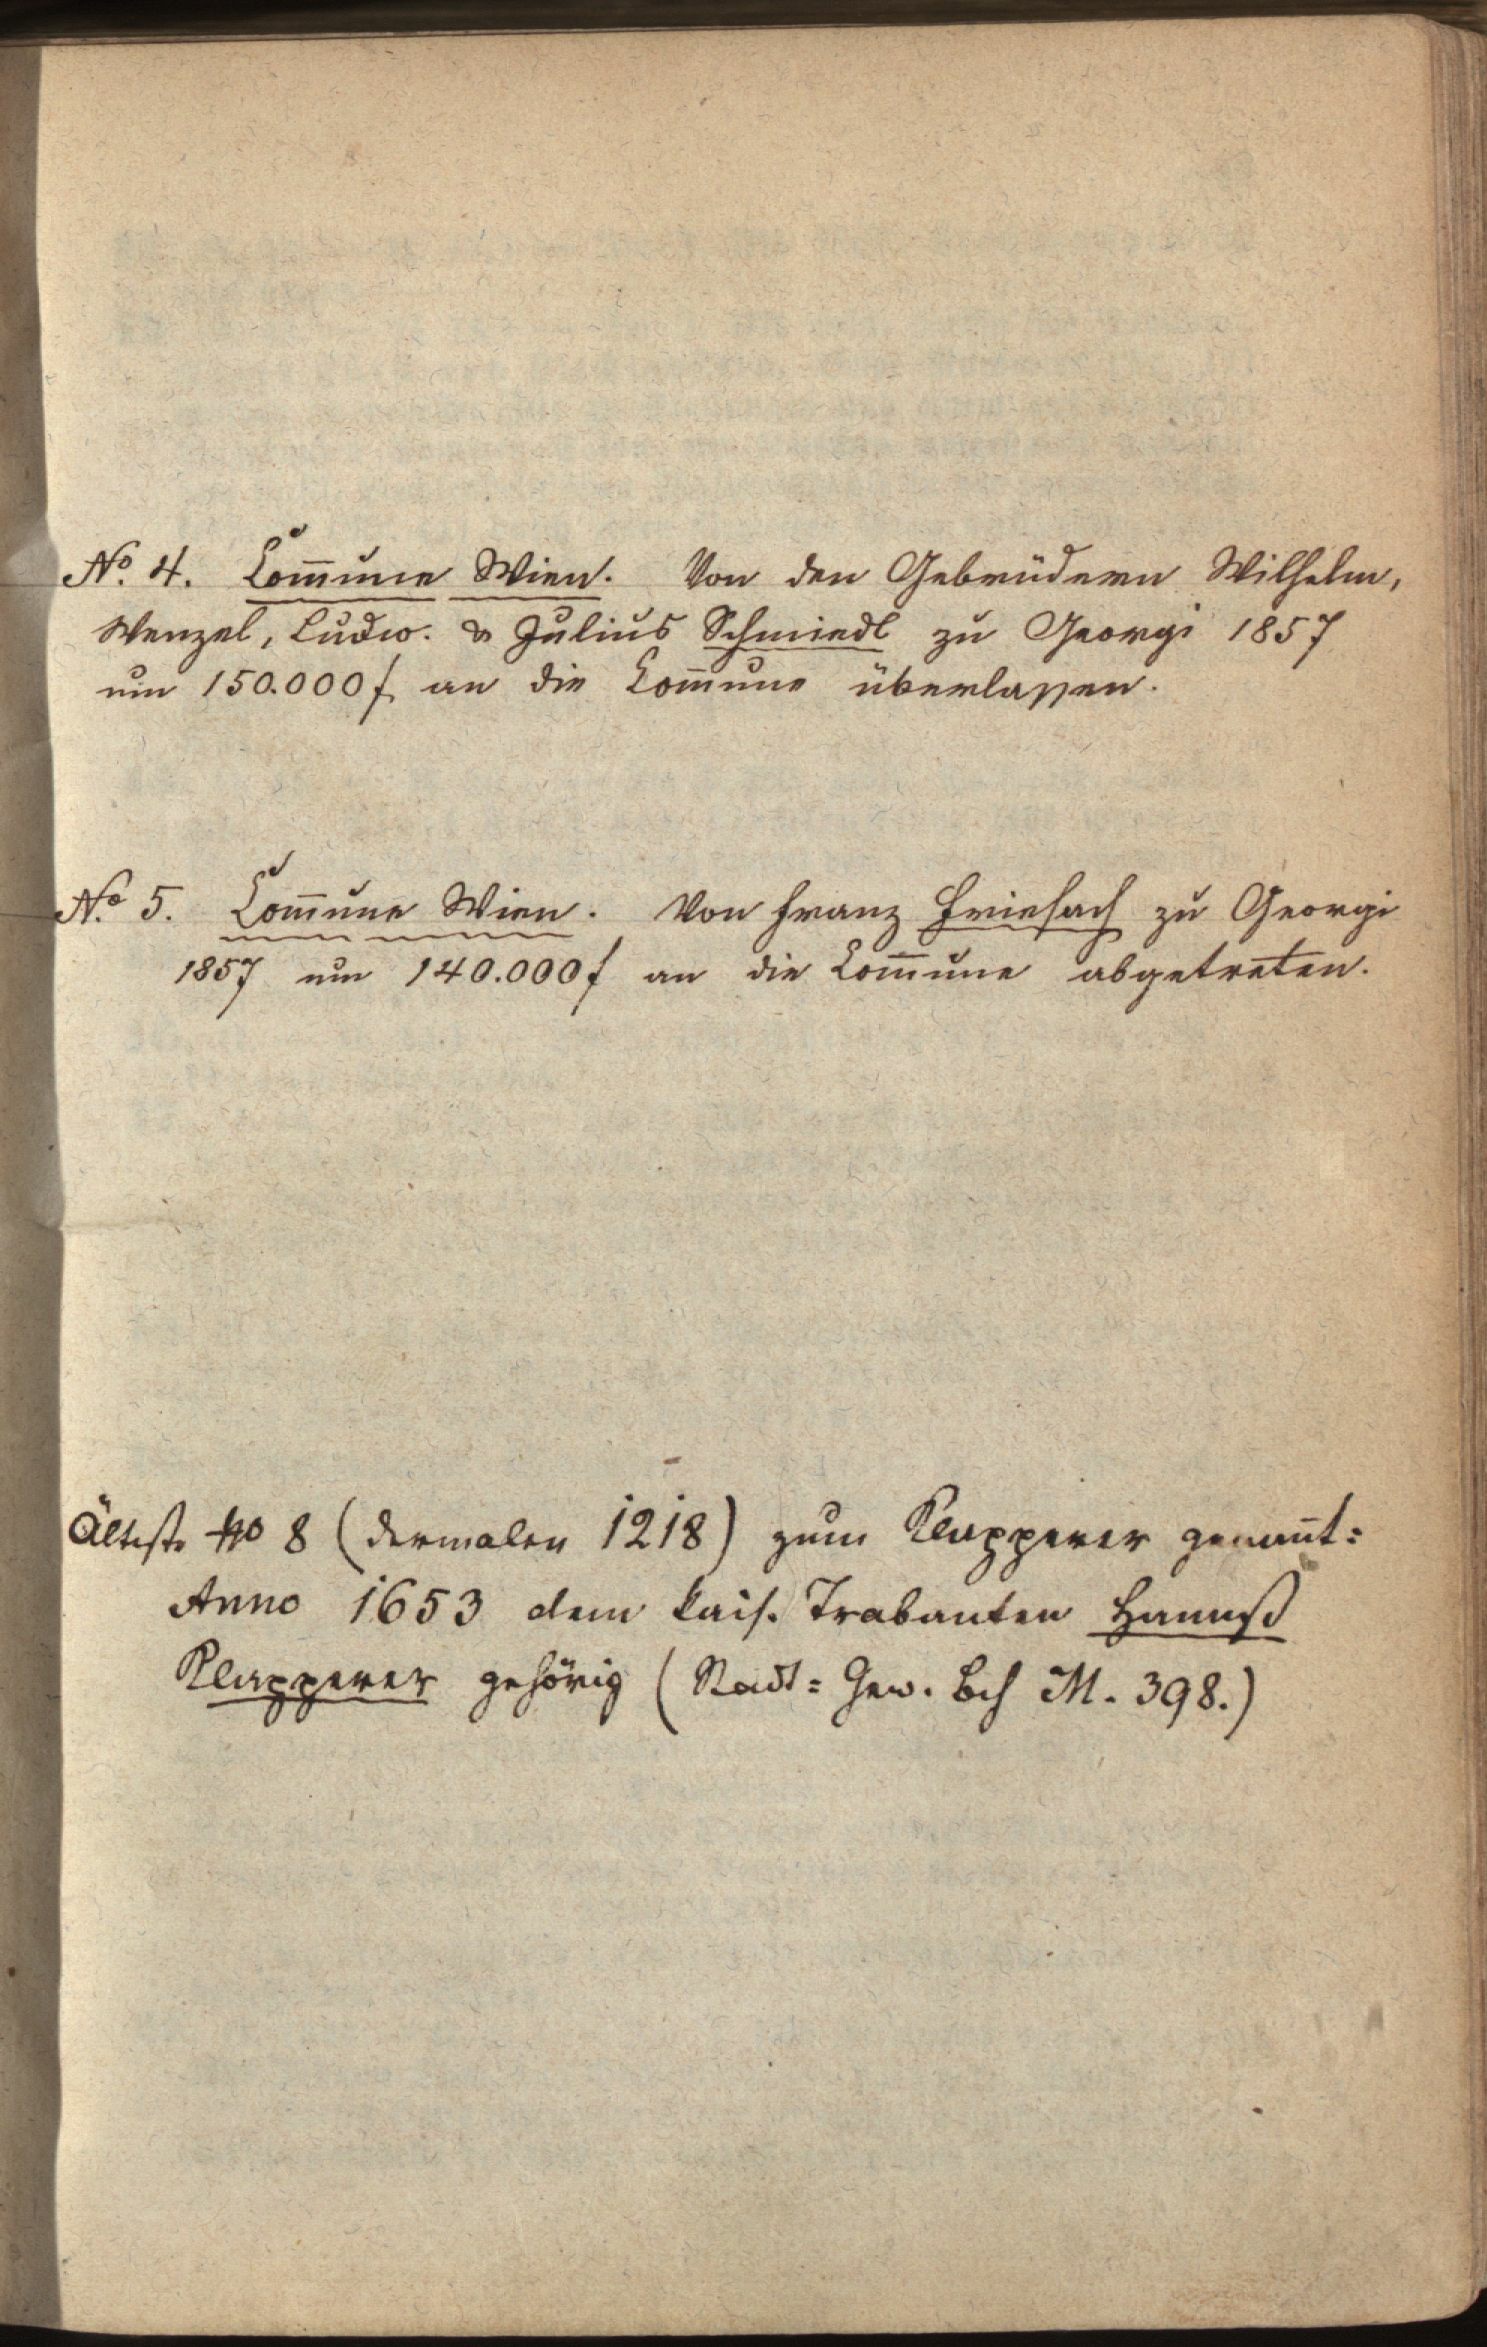 No. 4. Com̄une Wien. Von den Gebrüdern Wilhelm,
Wenzel, Ludw. & Julius Schmiedl zu Georgi 1857
um 150.000 f an die Com̄une überlassen.
No. 5. Com̄une Wien. Von Franz Friesach zu Georgi
1857 um 140.000 f an die Com̄une abgetreten.
Älteste No 8 (dermalen 1218) zum Klapperer genan̄t:
Anno 1653 dem kais. Trabanten Hannß
Klapperer gehörig (Stadt= Gew. Bch M. 398.)